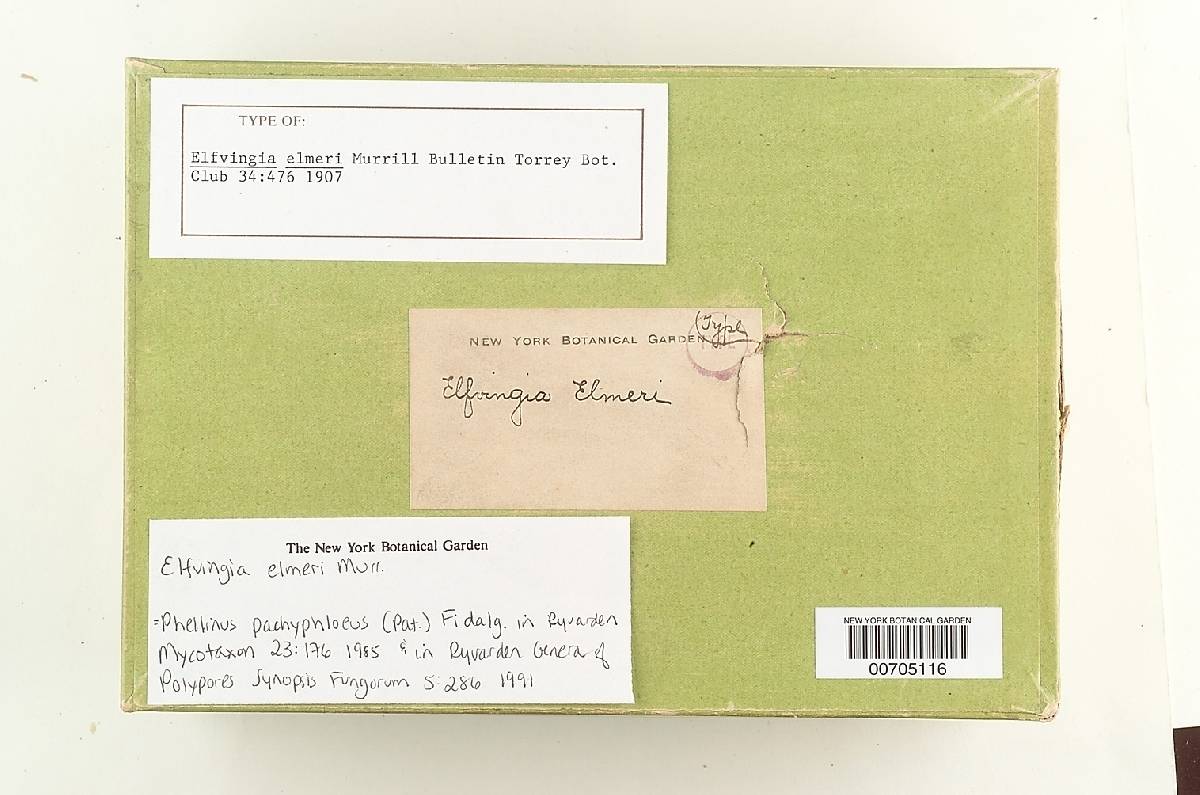 TYPE OF:
Elfvingia elmeri Murrill Bulletin Torrey Bot.
Club 34:476 1907
(Type
NEW YORK BOTANICAL GARDEN
Elfvingia Elmeri
The New York Botanical Garden
Elfvingia elmeri Murr.
=Phellinus pachyphloeus (Pat.) Fidalg. in Ryvarden
Mycotaxon 23:176 1985 & in Ryvarden Genera of
Polypores Synopsis Fungorum 5:286 1991
NEW YORK BOTANICAL GARDEN
00705116